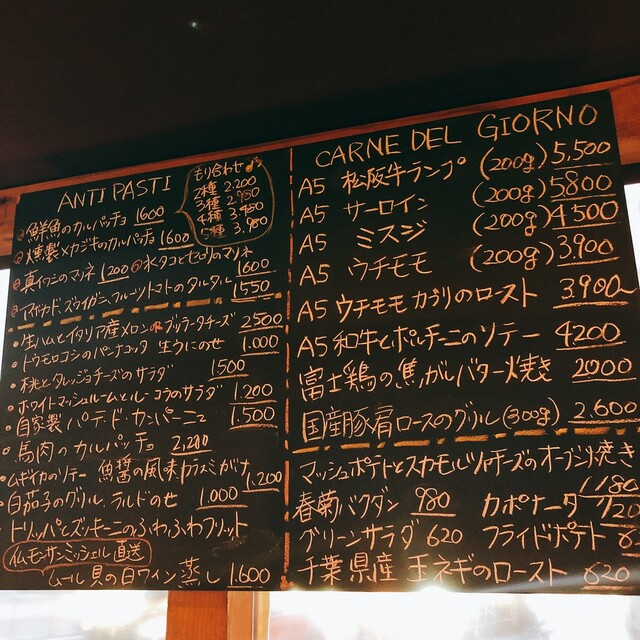 ANTI PASTI
もり合わせ
2種 2.200
3種 2.950
4種 3.450
5種 3.980
鮮魚のカルパッチョ 1600
燻製×カジキのカルパッチョ 1600
真イワシのマリネ 1200 水タコとセロリのマリネ 1600
アボカド、ズワイガニ、フルーツトマトのタルタル 1550
生ハムとイタリア産メロン ブッラータチーズ 2500
トウモロコシのパンナコッタ 生うにのせ 1.000
桃とタレッジョチーズのサラダ 1500
ホワイトマッシュルームとルーコラのサラダ 1.200
自家製 パテ・ド・カンパーニュ 1.500
馬肉のカルパッチョ 2,200
ムギイカのソテー 魚醤の風味 カラスミがけ 1,200
白茄子のグリル、ラルドのせ 1.000
トリッパとズッキーニのふわふわフリット
モンサンミッシェル 直送
ムール貝の白ワイン蒸し 1.600
CARNE DEL GIORNO
A5 松阪牛ランプ (200g) 5,500
A5 サーロイン (200g) 5800
A5 ミスジ (200g) 4500
A5 ウチモモ (200g) 3.900
A5 ウチモモ カブリのロースト 3.900
A5 和牛とポルチーニのソテー 4200
富士鶏の焦がしバター焼き 2000
国産豚肩ロースのグリル (300g) 2.600
マッシュポテトとスカモルツァチーズのオーブン焼き 1180
春菊バクダン 980 カポナータ 720
グリーンサラダ 620 フライドポテト
千葉県産 玉ネギのロースト 620